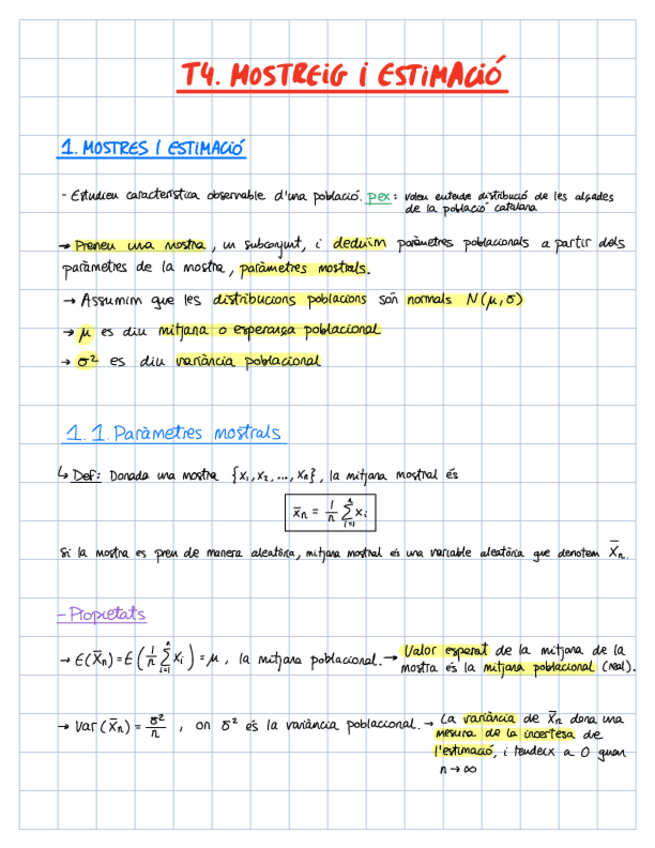 T4. MOSTREIG I ESTIMACIÓ
1. MOSTRES I ESTIMACIÓ
- Estudieu característica observable d'una població. pex: voleu entendre distribució de les alçades
de la població catalana
→ Preneu una mostra, un subconjunt, i deduïm paràmetres poblacionals a partir dels
paràmetres de la mostra, paràmetres mostrals.
→ Assumim que les distribucions poblacions són normals N(μ,σ)
→ μ es diu mitjana o esperança poblacional
→ σ² es diu variància poblacional
1.1. Paràmetres mostrals
↳ Def: Donada una mostra {x₁, x₂, ..., xₙ}, la mitjana mostral és
x̄ₙ = 1/n ∑ᵢ₌₁ⁿ xᵢ
Si la mostra es preu de manera aleatòria, mitjana mostral és una variable aleatòria que denotem X̄ₙ.
- Propietats
→ E(X̄ₙ) = E(1/n ∑ᵢ₌₁ⁿ xᵢ) = μ, la mitjana poblacional. → Valor esperat de la mitjana de la
mostra és la mitjana poblacional (real).
→ Var(X̄ₙ) = σ²/n, on σ² és la variància poblacional. → La variància de X̄ₙ dona una
mesura de la incertesa de
l'estimació, i tendeix a 0 quan
n → ∞